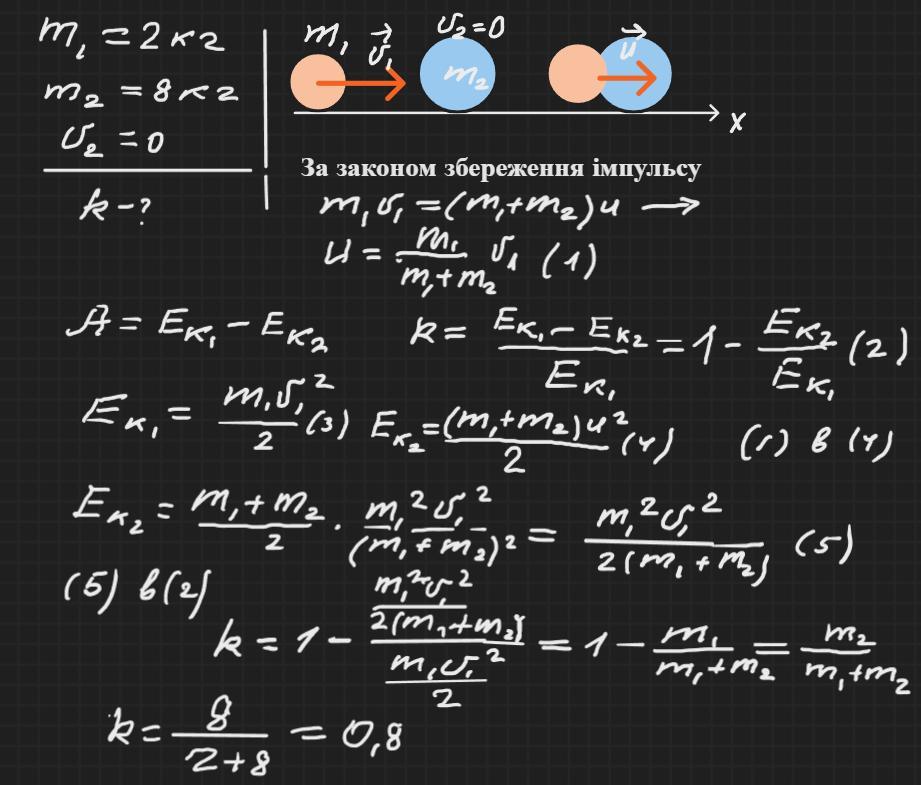 m₁ = 2 кг
m₂ = 8 кг
υ₂ = 0
k - ?
m₁ υ⃗₁ υ₂=0 u⃗
m₂
x
За законом збереження імпульсу
m₁υ₁ = (m₁+m₂)u →
u = m₁/(m₁+m₂) υ₁ (1)
A = Eк₁ − Eк₂ k = (Eк₁ − Eк₂)/Eк₁ = 1 − Eк₂/Eк₁ (2)
Eк₁ = m₁υ₁²/2 (3) Eк₂ = (m₁+m₂)u²/2 (4) (1) в (4)
Eк₂ = (m₁+m₂)/2 · m₁²υ₁²/(m₁+m₂)² = m₁²υ₁²/2(m₁+m₂) (5)
(5) в (2)
k = 1 − (m₁²υ₁²/2(m₁+m₂))/(m₁υ₁²/2) = 1 − m₁/(m₁+m₂) = m₂/(m₁+m₂)
k = 8/(2+8) = 0,8